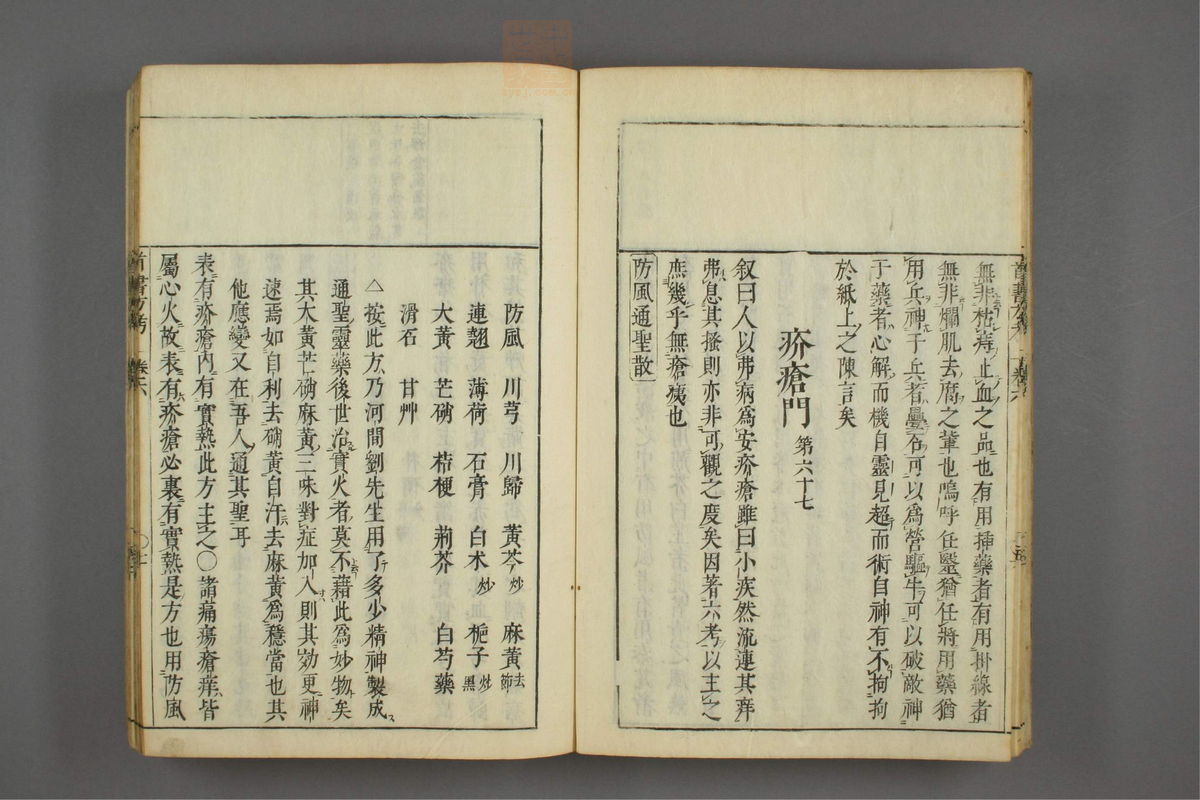 無非枯痔止血之品也有用挿藥者有用掛線者
無非爛肌去腐之軰也嗚呼任醫猶任將用藥猶
用兵神于兵者疊石可以為營驅牛可以破敵神
于藥者心解而機自靈見超而術自神有不拘拘
於紙上之陳言矣
疥瘡門 第六十七
叙曰人以弗病為安疥瘡雖曰小疾然流連其痒
弗息其搔則亦非可觀之度矣因著六考以主之
庶幾乎無瘡痍也
防風通聖散
防風 川芎 川歸 黃芩炒 麻黃去節
連翹 薄荷 石膏 白术炒 梔子炒黑
大黃 芒硝 桔梗 荊芥 白芍藥
滑石 甘艸
△按此方乃河間劉先生用了多少精神製成
通聖靈藥後世治實火者莫不藉此為妙物矣
其大黃芒硝麻黃三味對症加入則其効更神
速焉如自利去硝黃自汗去麻黃為穩當也其
他應變又在吾人通其聖耳
表有疥瘡內有實熱此方主之〇諸痛瘍瘡痒皆
屬心火故表有疥瘡必裏有實熱是方也用防風